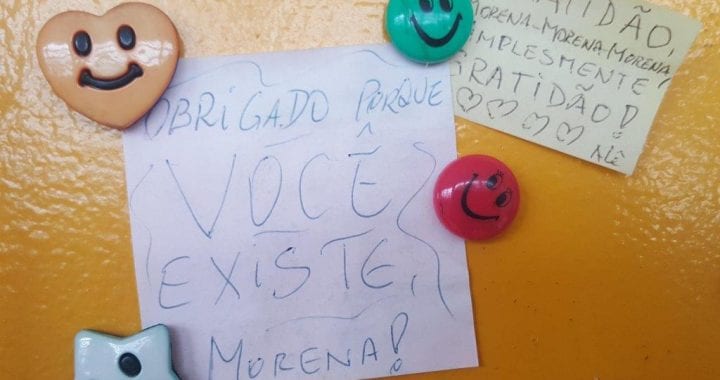 OBRIGADO PORQUE
VOCÊ
EXISTE,
MORENA!
GRATIDÃO,
MORENA-MORENA-MORENA,
SIMPLESMENTE
GRATIDÃO!
Alê